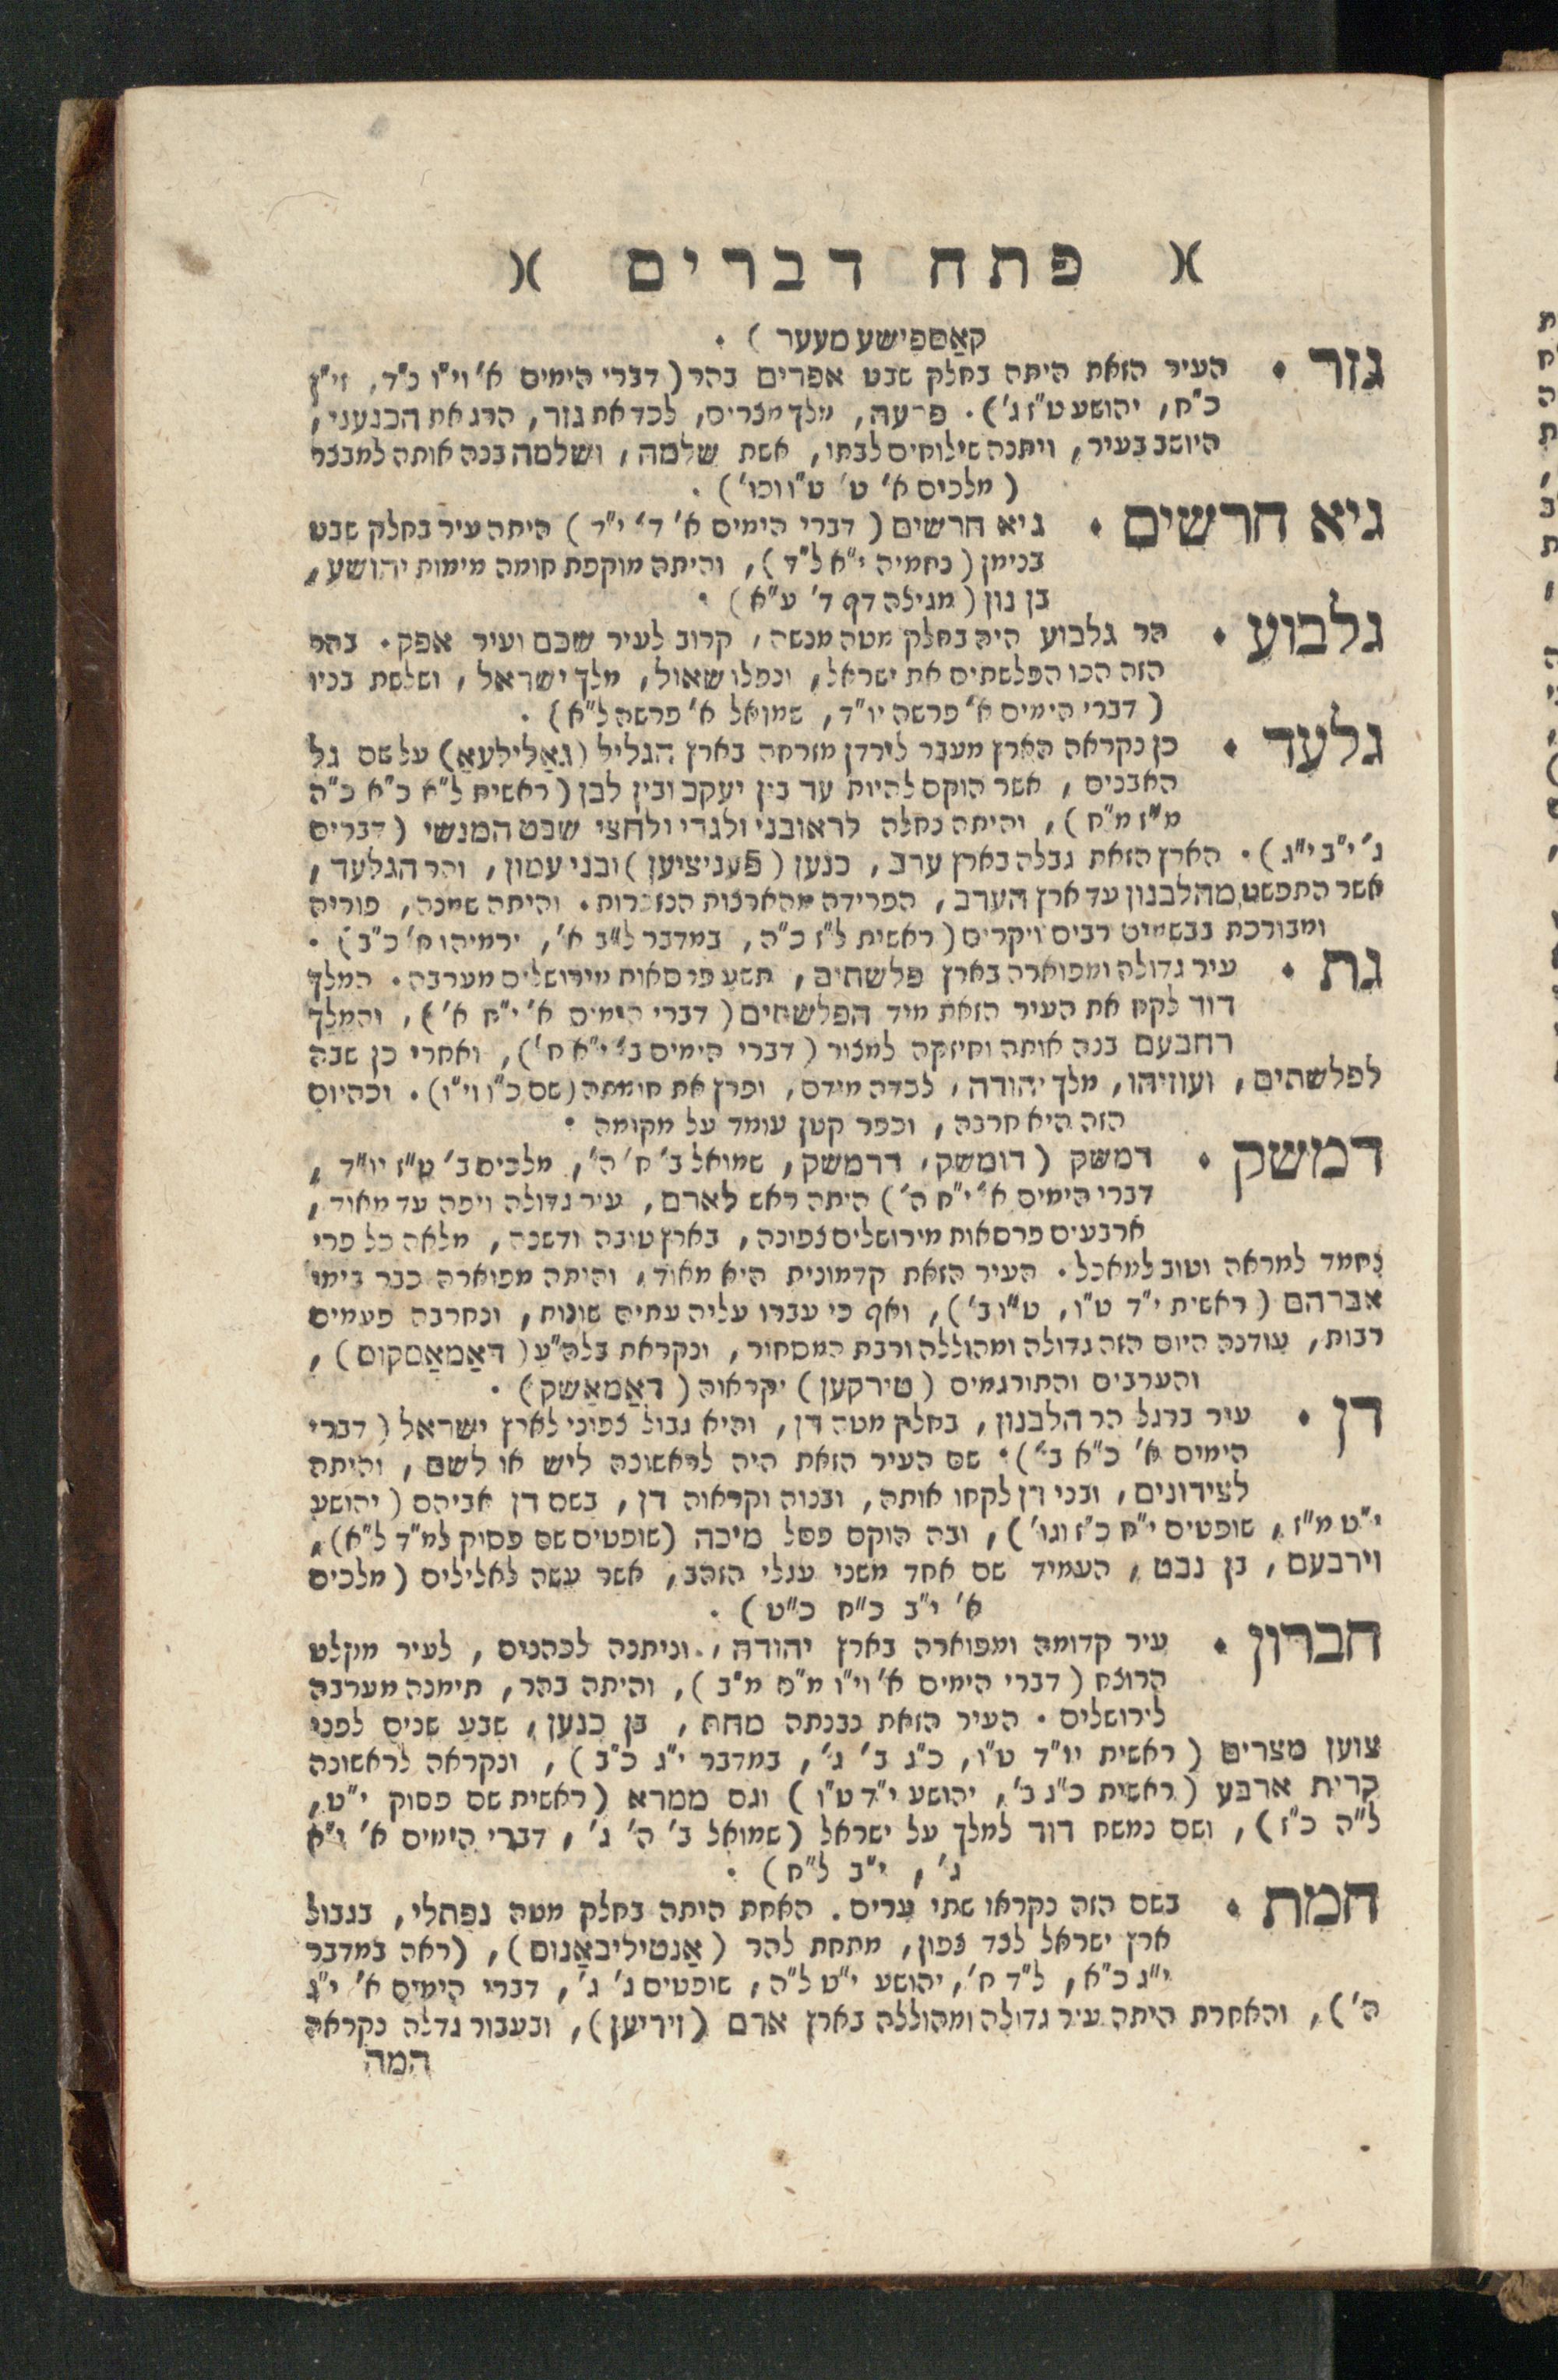 )( פתח דברים )(
קאַספישע מעער ) .
גזר . העיר הזאת היתה בחלק שבט אפרים בהר ( דברי הימים א' וי"ו כ"ד, זי"ן
כ"ח, יהושע ט"ז ג' ) . פרעה, מלך מצרים, לכד את גזר, הרג את הכנעני,
היושב בעיר, ויתנה שילוחים לבתו, אשת שלמה, ושלמה בנה אותה למבצר
( מלכים א' ט' ט"ו וכו' ) .
גיא חרשים . גיא חרשים ( דברי הימים א' ד' י"ד ) היתה עיר בחלק שבט
בנימן ( נחמיה י"א ל"ד ), והיתה מוקפת חומה מימות יהושע,
בן נון ( מגילה דף ד' ע"א ) .
גלבוע . הר גלבוע היה בחלק מטה מנשה, קרוב לעיר שכם ועיר אפק . בהר
הזה הכו הפלשתים את ישראל, ונפלו שאול, מלך ישראל, ושלשת בניו
( דברי הימים א' פרשה יו"ד, שמואל א' פרשה ל"א ) .
גלעד . כן נקראה הארץ מעבר לירדן מזרחה בארץ הגליל ( גאַלילעאַ ) על שם גל
האבנים, אשר הוקם להיות עד בין יעקב ובין לבן ( ראשית ל"א כ"א כ"ה
מ"ז מ"ח ), והיתה נחלה לראובני ולגדי ולחצי שבט המנשי ( דברים
ג' י"ב י"ג ) . הארץ הזאת גבלה בארץ ערב, כנען ( פֿעניציען ) ובני עמון, והר הגלעד,
אשר התפשט מהלבנון עד ארץ הערב, הפרידה מהארצות הנזכרות . והיתה שמנה, פוריה
ומבורכת בבשמים רבים ויקרים ( ראשית ל"ז כ"ה, במדבר ל"ב א', ירמיהו ח' כ"ב ) .
גת . עיר גדולה ומפוארה בארץ פלשתים, תשע פרסאות מירושלים מערבה . המלך
דוד לקח את העיר הזאת מיד הפלשתים ( דברי הימים א' י"ח א' ), והמלך
רחבעם בנה אותה וחיזקה למצור ( דברי הימים ב' י"א ח' ), ואחרי כן שבה
לפלשתים, ועוזיהו, מלך יהודה, לכדה מידם, ופרץ את חומתה ( שם כ"ו וי"ו ) . וכהיום
הזה היא חרבה, וכפר קטן עומד על מקומה .
דמשק . דמשק ( דומשק, דרמשק, שמואל ב' ח' ה', מלכים ב' ט"ז יו"ד,
דברי הימים א' י"ח ה' ) היתה ראש לארם, עיר גדולה ויפה עד מאוד,
ארבעים פרסאות מירושלים צפונה, בארץ טובה ודשנה, מלאה כל פרי
נחמד למראה וטוב למאכל . העיר הזאת קדמונית היא מאוד, והיתה מפוארה כבר בימי
אברהם ( ראשית י"ד ט"ו, ט"ו ב' ), ואף כי עברו עליה עתים שונות, ונחרבה פעמים
רבות, עודנה היום הזה גדולה ומהוללה ורבת המסחור, ונקראת בלה"ע ( דאַמאַסקוס ),
והערבים והתורגמים ( טירקען ) יקראוה ( דאַמאַשק ) .
דן . עיר ברגל הר הלבנון, בחלק מטה דן, והיא גבול צפוני לארץ ישראל ( דברי
הימים א' כ"א ב' ) . שם העיר הזאת היה לראשונה ליש או לשם, והיתה
לצידונים, ובני דן לקחו אותה, ובנוה וקראוה דן, בשם דן אביהם ( יהושע
י"ט מ"ז, שופטים י"ח כ"ז וגו' ), ובה הוקם פסל מיכה ( שופטים שם פסוק למ"ד ל"א ),
וירבעם, בן נבט, העמיד שם אחד משני עגלי הזהב, אשר עשה לאלילים ( מלכים
א' י"ב כ"ח כ"ט ) .
חברון . עיר קדומה ומפוארה בארץ יהודה, וניתנה לכהנים, לעיר מקלט
הרוצח ( דברי הימים א' וי"ו מ"ם מ"ב ), והיתה בהר, תימנה מערבה
לירושלים . העיר הזאת נבנתה מחת, בן כנען, שבע שנים לפני
צוען מצרים ( ראשית יו"ד ט"ו, כ"ג ב' ג', במדבר י"ג כ"ב ), ונקראה לראשונה
קרית ארבע ( ראשית כ"ג ב', יהושע י"ד ט"ו ) וגם ממרא ( ראשית שם פסוק י"ט,
ל"ה כ"ז ), ושם נמשח דוד למלך על ישראל ( שמואל ב' ה' ג', דברי הימים א' י"א
ג', י"ב ל"ח ) .
חמת . בשם הזה נקראו שתי ערים . האחת היתה בחלק מטה נפתלי, בגבול
ארץ ישראל לצד צפון, מתחת להר ( אַנטיליבאַנוס ), ( ראה במדבר
י"ג כ"א, ל"ד ח', יהושע י"ט ל"ה, שופטים ג' ג', דברי הימים א' י"ג
ה' ), והאחרת היתה עיר גדולה ומהוללה בארץ ארם ( זיריען ), ובעבור גדלה נקראה
המה